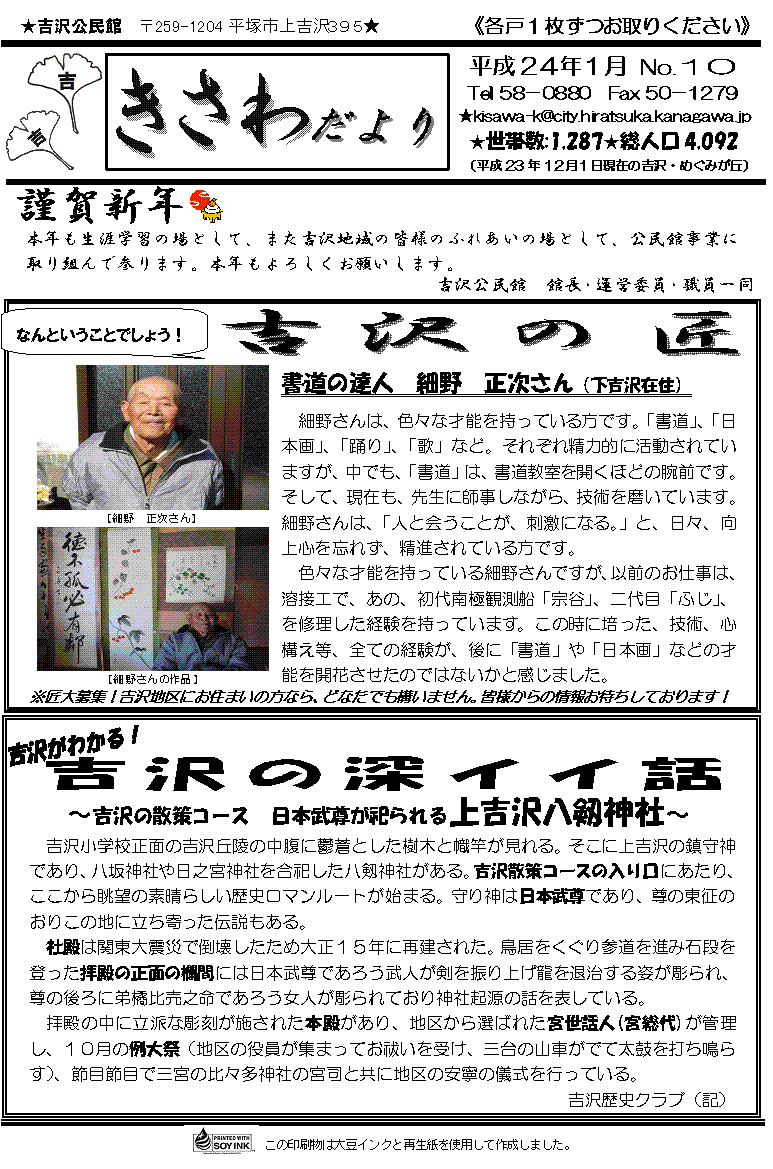 ★吉沢公民館　〒259-1204 平塚市上吉沢395★
《各戸１枚ずつお取りください》
吉
吉
きさわだより
平成２４年１月 No.１０
Tel 58－0880　Fax 50－1279
★kisawa-k@city.hiratsuka.kanagawa.jp
★世帯数:1,287★総人口 4,092
（平成２３年１２月１日現在の吉沢・めぐみが丘）
謹賀新年
本年も生涯学習の場として、また吉沢地域の皆様のふれあいの場として、公民館事業に
取り組んで参ります。本年もよろしくお願いします。
吉沢公民館　館長・運営委員・職員一同
なんということでしょう！
吉沢の匠
書道の達人　細野　正次さん（下吉沢在住）
細野さんは、色々な才能を持っている方です。「書道」、「日
本画」、「踊り」、「歌」など。それぞれ精力的に活動されてい
ますが、中でも、「書道」は、書道教室を開くほどの腕前です。
そして、現在も、先生に師事しながら、技術を磨いています。
細野さんは、「人と会うことが、刺激になる。」と、日々、向
上心を忘れず、精進されている方です。
色々な才能を持っている細野さんですが、以前のお仕事は、
溶接工で、あの、初代南極観測船「宗谷」、二代目「ふじ」、
を修理した経験を持っています。この時に培った、技術、心
構え等、全ての経験が、後に「書道」や「日本画」などの才
能を開花させたのではないかと感じました。
【細野　正次さん】
徳不孤必有鄰
【細野さんの作品】
※匠大募集！吉沢地区にお住まいの方なら、どなたでも構いません。皆様からの情報お待ちしております！
吉沢がわかる！
吉沢の深イイ話
～吉沢の散策コース　日本武尊が祀られる上吉沢八剱神社～
吉沢小学校正面の吉沢丘陵の中腹に鬱蒼とした樹木と幟竿が見れる。そこに上吉沢の鎮守神
であり、八坂神社や日之宮神社を合祀した八剱神社がある。吉沢散策コースの入り口にあたり、
ここから眺望の素晴らしい歴史ロマンルートが始まる。守り神は日本武尊であり、尊の東征の
おりこの地に立ち寄った伝説もある。
社殿は関東大震災で倒壊したため大正１５年に再建された。鳥居をくぐり参道を進み石段を
登った拝殿の正面の欄間には日本武尊であろう武人が剣を振り上げ龍を退治する姿が彫られ、
尊の後ろに弟橘比売之命であろう女人が彫られており神社起源の話を表している。
拝殿の中に立派な彫刻が施された本殿があり、地区から選ばれた宮世話人(宮総代)が管理
し、１０月の例大祭（地区の役員が集まってお祓いを受け、三台の山車がでて太鼓を打ち鳴ら
す）、節目節目で三宮の比々多神社の宮司と共に地区の安寧の儀式を行っている。
吉沢歴史クラブ（記）
PRINTED WITH
SOY INK
この印刷物は大豆インクと再生紙を使用して作成しました。